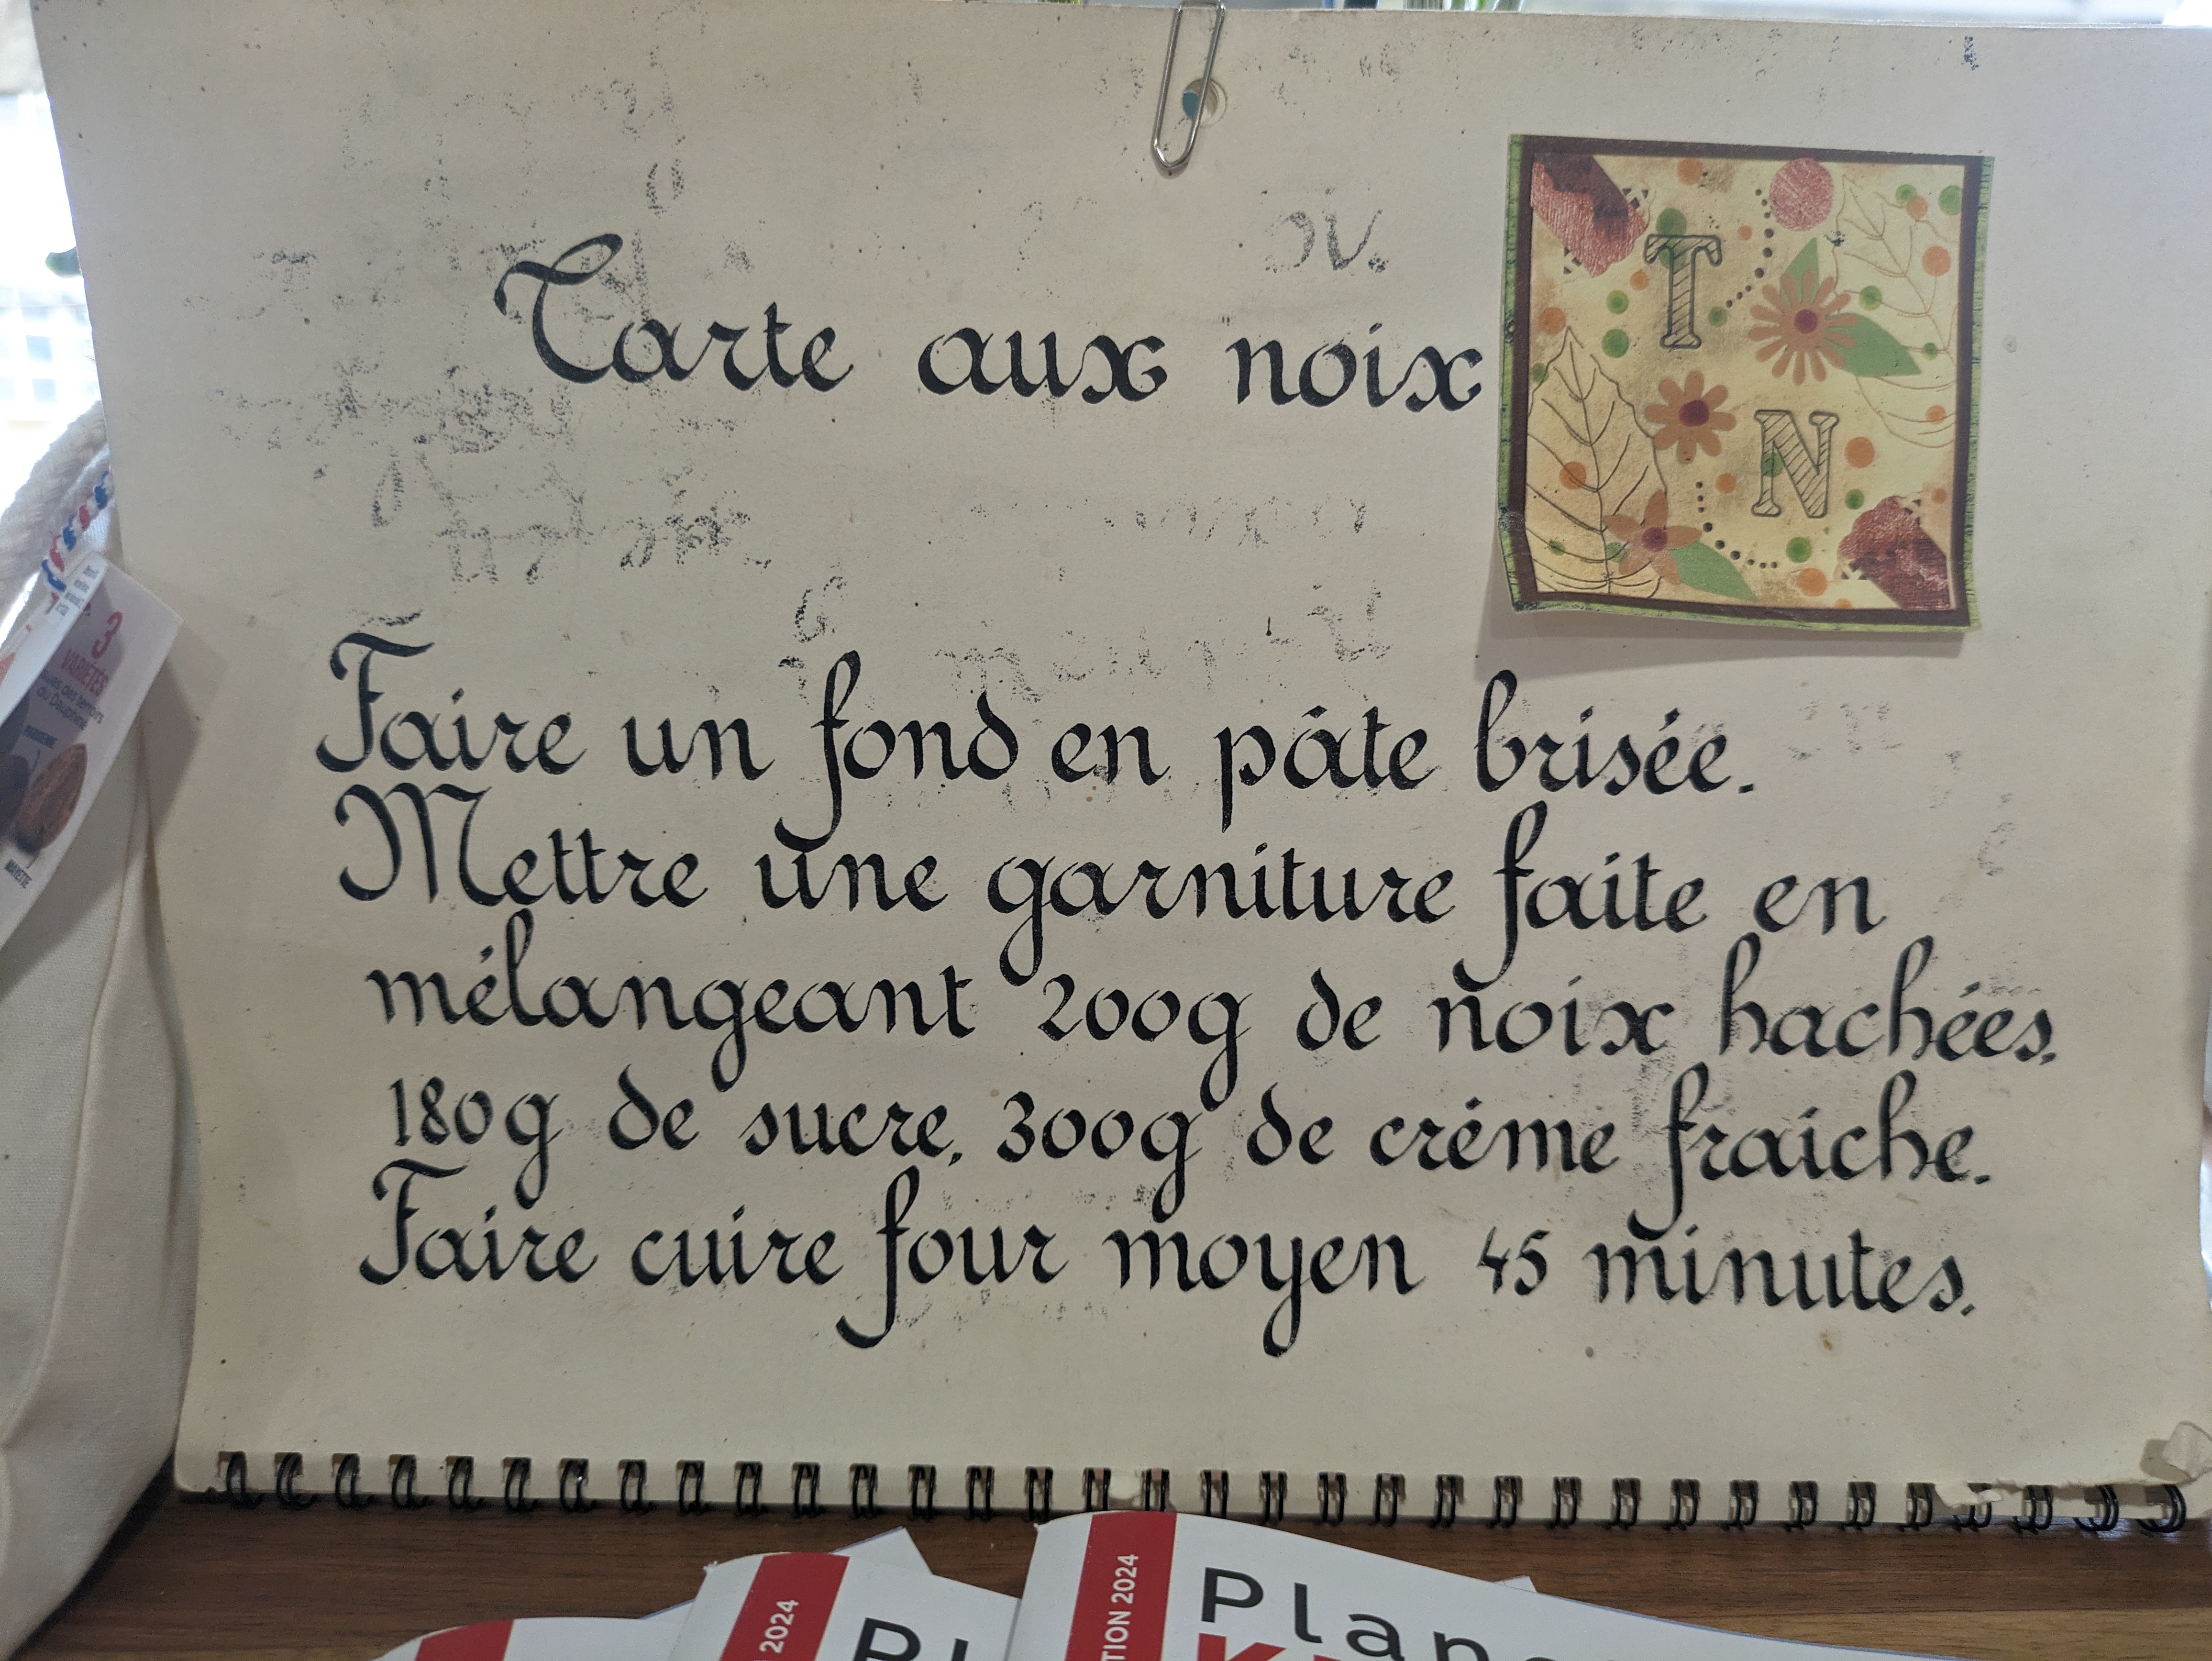 Tarte aux noix
T
N
Faire un fond en pâte brisée.
Mettre une garniture faite en
mélangeant 200g de noix hachées,
180g de sucre, 300g de créme fraiche.
Faire cuire four moyen 45 minutes.
3
VARIÉTÉS
du Dauphiné
MAYETTE
2024
2024
Plan